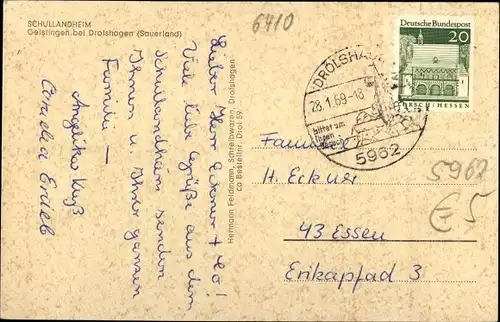 SCHULLANDHEIM
Gelslingen bei Drolshagen (Sauerland)
6410
Lieber Herr Eckner + Co!
Viele liebe Grüße aus dem
Schullandheim senden
Ihnen u. Ihrer ganzen
Familie —
Angelika Kuß
Hermann Feldmann, Schreibwaren, Drolshagen
co Bestellnr. Drol 59
Deutsche Bundespost
20
LORSCH/HESSEN
DROLSHAGEN
28.1.69-18
5962
Familie
H. Eckner
43 Essen
Erikapfad 3
5962
€5